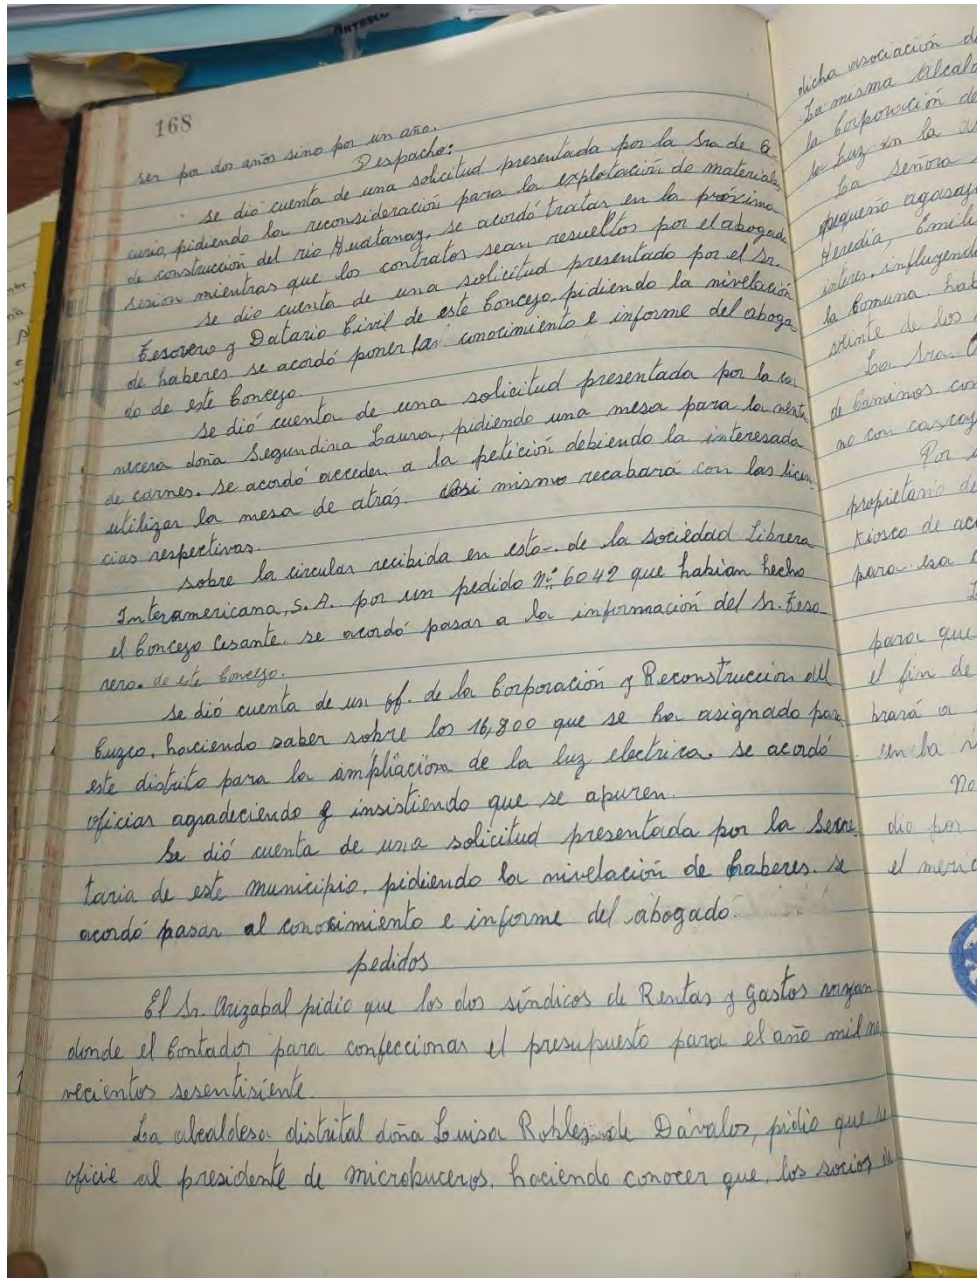 168
ser por dos años sino por un año.
Despacho:
se dió cuenta de una solicitud presentada por la Sra de
curio, pidiendo la reconsideración para la explotación de materiales
de construcción del rio Huatanay, se acordó tratar en la próxima
sesion mientras que los contratos sean resueltos por el abogado
se dio cuenta de una solicitud presentado por el Sr.
Tesorero y Datario Civil de este Concejo, pidiendo la nivelación
de haberes. se acordó poner las conocimiento e informe del aboga-
do de este Concejo.
se dió cuenta de una solicitud presentada por la car
nicera doña Segundina Laura, pidiendo una mesa para la venta
de carnes. se acordó acceder a la petición debiendo la interesada
utilizar la mesa de atrás. Asi mismo recabará con las licen-
cias respectivas.
sobre la circular recibida en esta-. de la sociedad Librera
Interamericana, S.A. por un pedido Nº 6042 que habian hecho
el Concejo Cesante. se acordó pasar a la información del Sr. Teso
rero. de este Concejo.
se dió cuenta de un of. de la Corporación y Reconstrucción del
Cuzco, haciendo saber sobre los 16,800 que se ha asignado para
este distrito para la ampliaciòn de la luz electrica. se acordó
oficiar agradeciendo y insistiendo que se apuren.
Se dió cuenta de una solicitud presentada por la Secre-
taria de este municipio, pidiendo la nivelación de haberes. se
acordó pasar al conocimiento e informe del abogado.
pedidos
El Sr. Arizabal pidio que los dos síndicos de Rentas y Gastos vayan
donde el Contador para confeccionar el presupuesto para el año mil no
vecientos sesentisiente.
La alcaldesa distrital doña Luisa Robles de Dávalos, pidio que se
oficie al presidente de microbuceros, haciendo conocer que, los socios de
dicha asociación
La misma Alcald
la Corporación de
la luz en la
La señora
pequeño agasajo
Heredia, Emili
interes, influyendo
la Comuna, hab
de los
La Sra
de Caminos con
no con cascaj
Por
propietario de
Kiosco de
para esa
para que
el fin de
brará a
en la
No
dio por
el